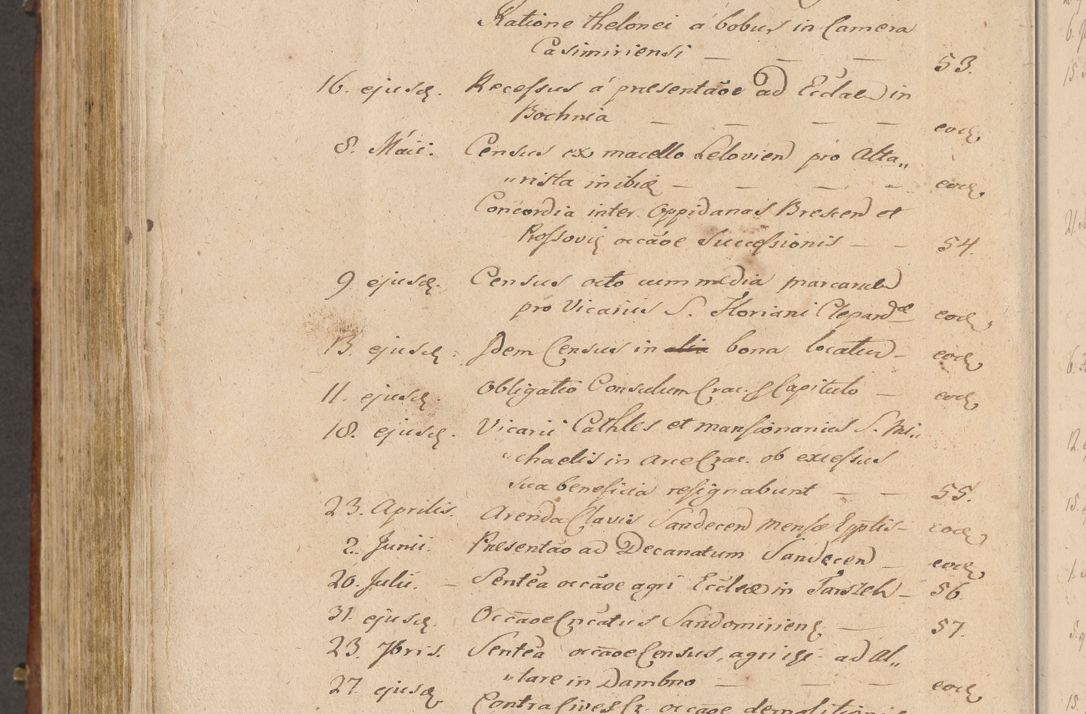 Ratione thelonei a bobus in Camera
Casimiriensi — — — 53.
16. ejusd. Recessus á praesentãoe ad Eccl̃ae in
Bochnia — — — — eod.
8. Máii. Censuς ex macello Lelovien pro Alta„
„rista in ibid — — — — eod.
Concordia inter Oppidanas Brescen et
occãoe Successionis — — 54.
9 ejusd. Census octo cum media marcarum
pro Vicariis S. Floriani Clepard̃ae eod.
13. ejusd. Idem Census in bona locatur — eod.
11. ejusd. Obligatio Consulum Crac. Capitulo — eod.
18. ejusd. Vicarii Cathles et mansionarios S. Mi„
„chaelis in Arce Crac. ob excessus
sua beneficia resignabunt — — 55.
23. Aprilis. Arenda Clavis Sandecen mensæ Epptis — eod.
2. Junii. Præsentão ad Decanatum Sandecen — eod.
20. Julii. — Sentẽa occãoe agri Eccl̃æ in — 56
31. ejusd. Occãoe Sandomirien — 57.
23. 7bris. Sentẽa occãoe Census, agri ad Al„
„tare in Dambno — — — eod.
27. ejusd. Contra Cives occãoe demolitionis